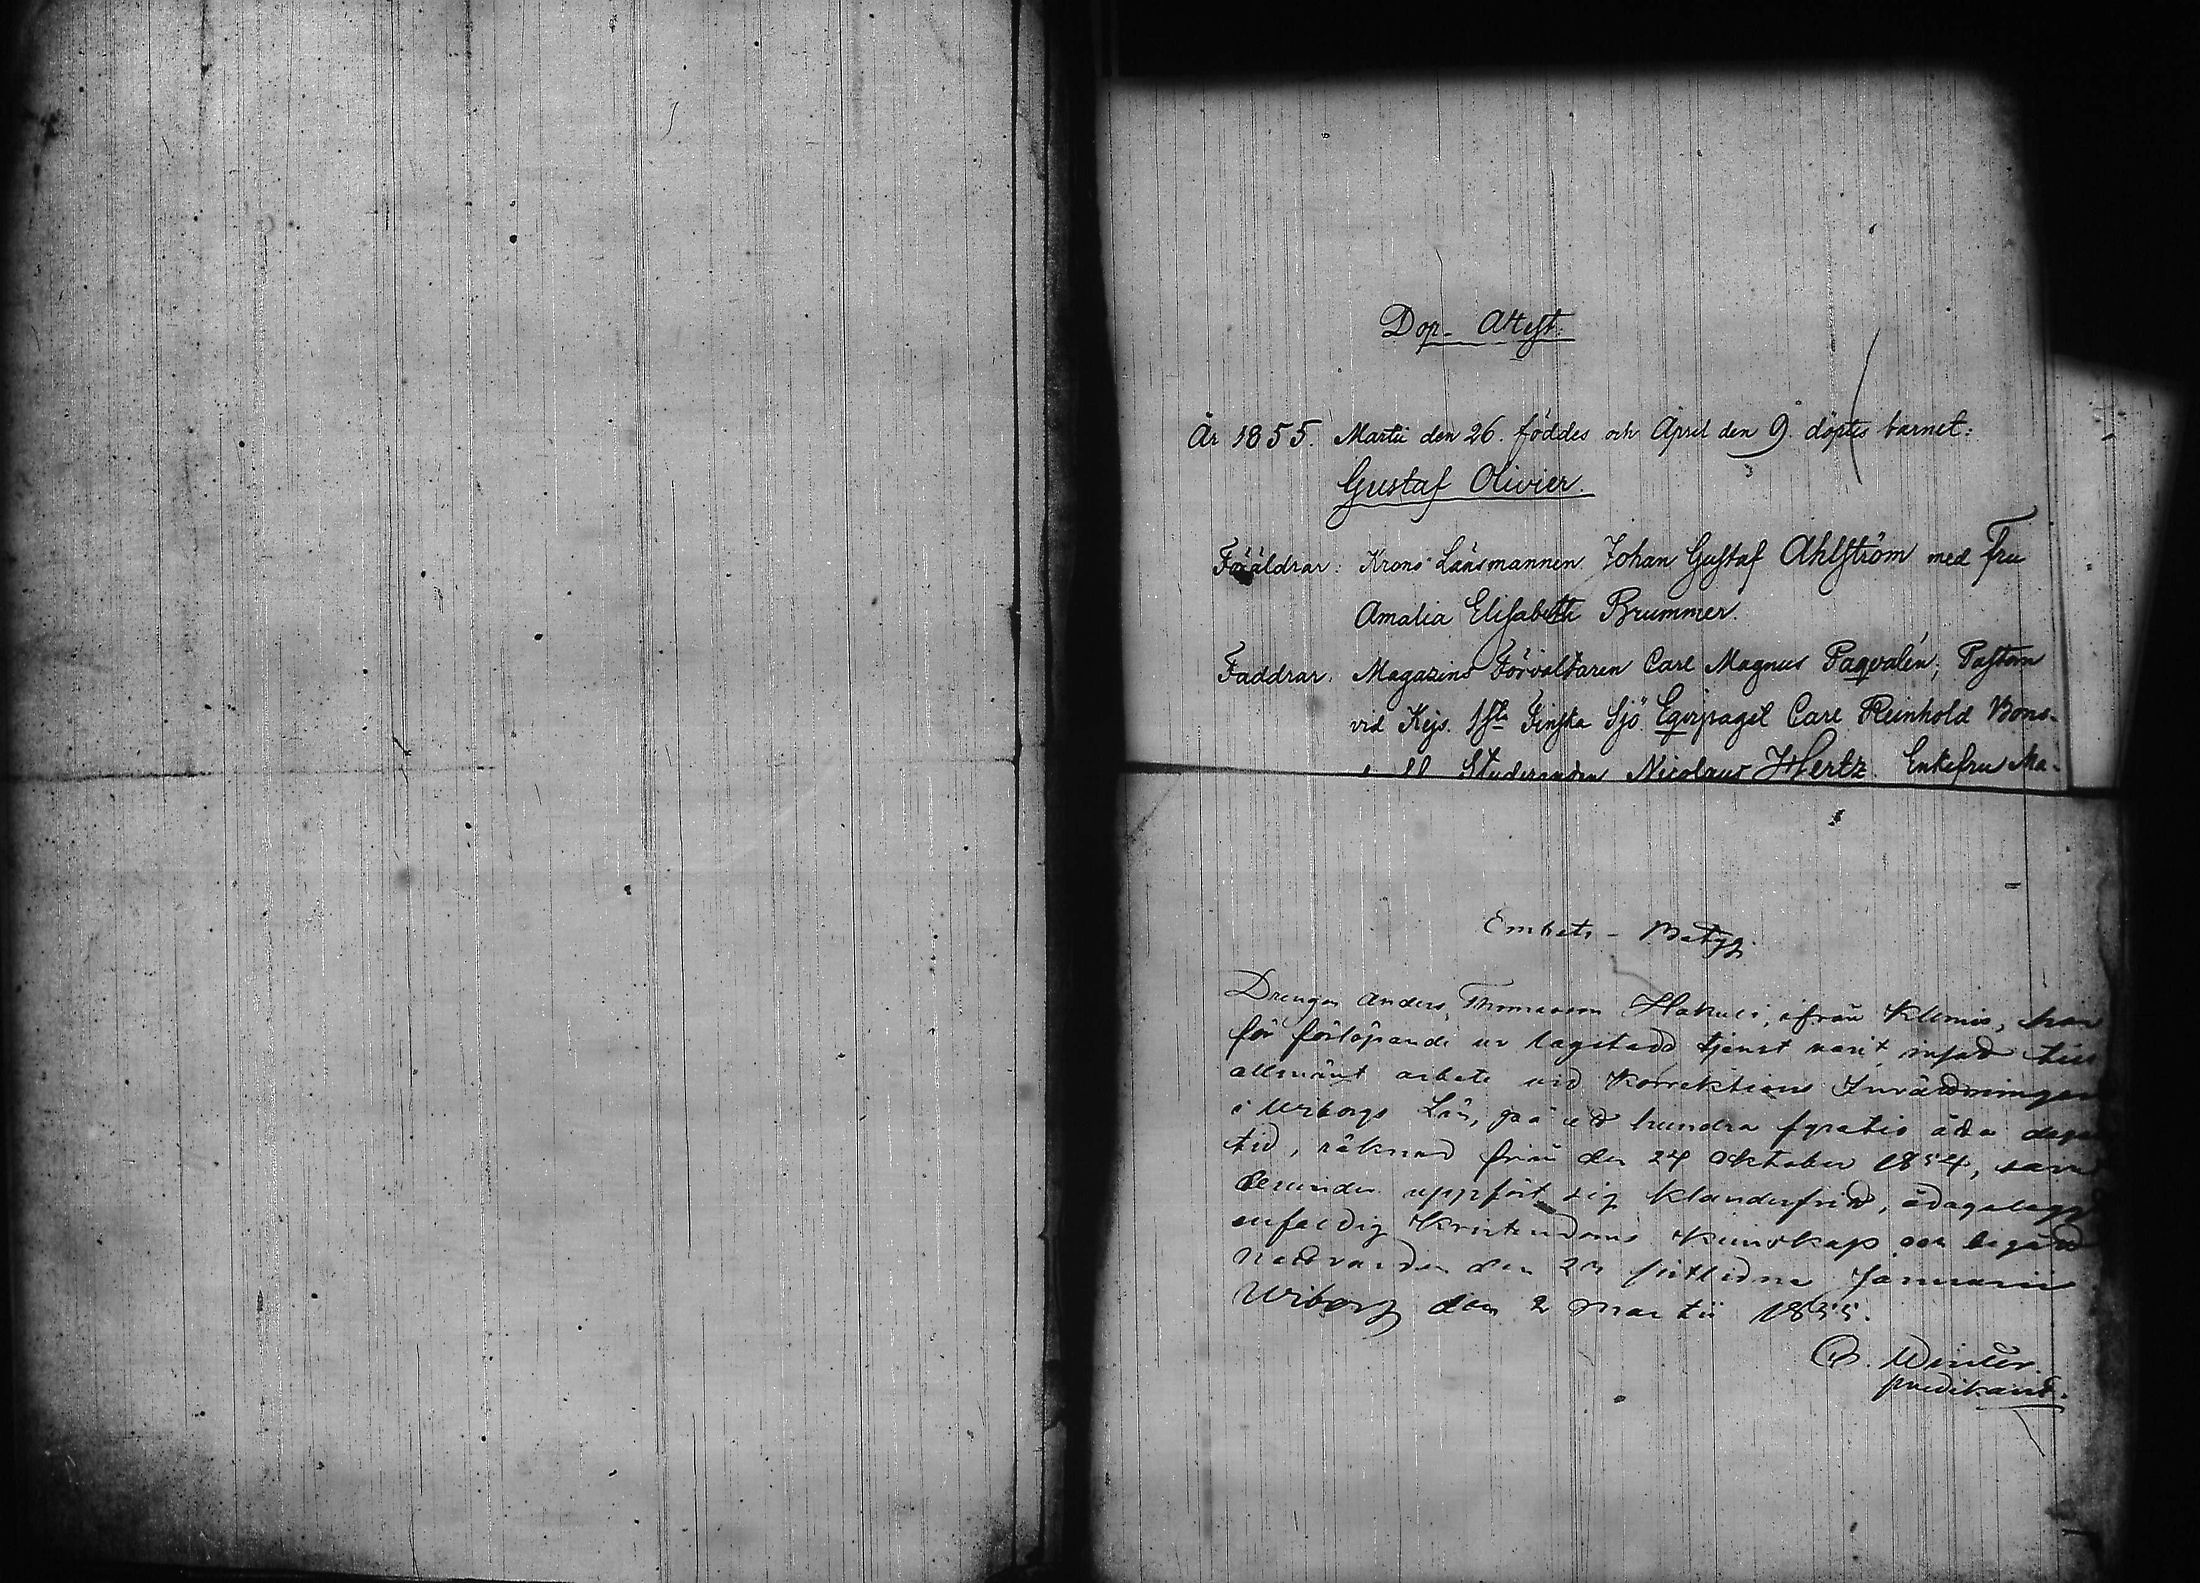 Dop- Attest.
År 1855. Martii den 26. föddes och April den 9. döptes barnet:
Gustaf Olivier.
Föräldrar: Krono Länsmannen Johan Gustaf Ahlström med Fru
Amalia Elisabeth Brummer.
Faddrar. Magazins Förvaltaren Carl Magnus Paqvalén, Pastorn
vid Kejs. 1sta Finska Sjö Eqvipaget Carl Reinhold Bons-
Studeranden Nicolaus Hertz. Enkefru Ma-
Embets - Betyg.
Drengen Anders Thomasson Hakuli, ifrån Klemis, har
för förlöpande ur lagstadd tjenst varit insatt till
allmänt arbete vid Korrektions Inrättningen
i Wiborgs Län, på ett hundra fyratio åtta dagars
tid, räknad från den 24 Oktober 1854, samt
derunder uppfört sig klanderfritt, ådagalagt
enfaldig Kristendoms kunskap och begått
Nattvarden den sistlidne Januarii
Wiborg den 2 Martii 1855.
Winter
predikant.